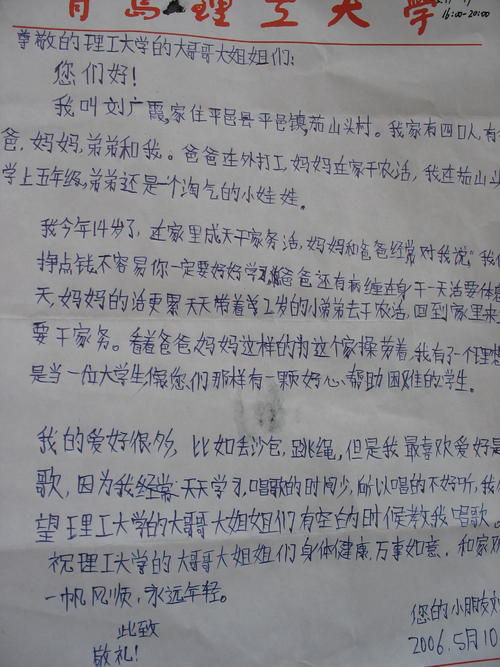 青岛理工大学
16:00-20:00
尊敬的理工大学的大哥哥大姐姐们:
您们好!
我叫刘广霞,家住平邑县平邑镇,茄山头村。我家有四口人,有
爸,妈妈,弟弟和我。爸爸在外打工,妈妈在家干农活,我在茄山头
学上五年级,弟弟还是一个淘气的小娃娃。
我今年14岁了,在家里成天干家务活,妈妈和爸爸经常对我说:"我们
挣点钱不容易你一定要好好学习,爸爸还有病缠在身干一天活要休
天,妈妈的话更累天天带着学2岁的小弟弟去干农活,回到家里来
要干家务。看着爸爸,妈妈这样的为这个家操劳着,我有了一个理想
是当一位大学生,像您们那样有一颗好心帮助困难的学生。
我的爱好很多,比如丢沙包,跳绳,但是我最喜欢爱好是
歌,因为我经常天天学习,唱歌的时间少,所以唱的不好听,我
望理工大学的大哥哥大姐姐们有空的时候教我唱歌。
祝理工大学的大哥哥大姐姐们身体健康,万事如意,和家欢
一帆风顺,永远年轻。
此致
敬礼!
您的小朋友刘
2006.5月10